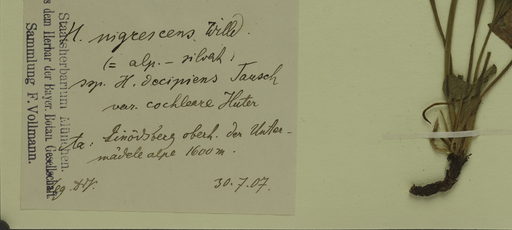 H. nigrescens Willd.
(= alp. – silvat.)
ssp. H. decipiens Tausch
var. cochleare Huter
ta: Einödsberg oberh. der Unter-
mädele alpe 1600 m.
30.7.07.
Staatsherbarium München.
s dem Herbar der Bayer. Botan. Gesellschaft
Sammlung F. Vollmann.